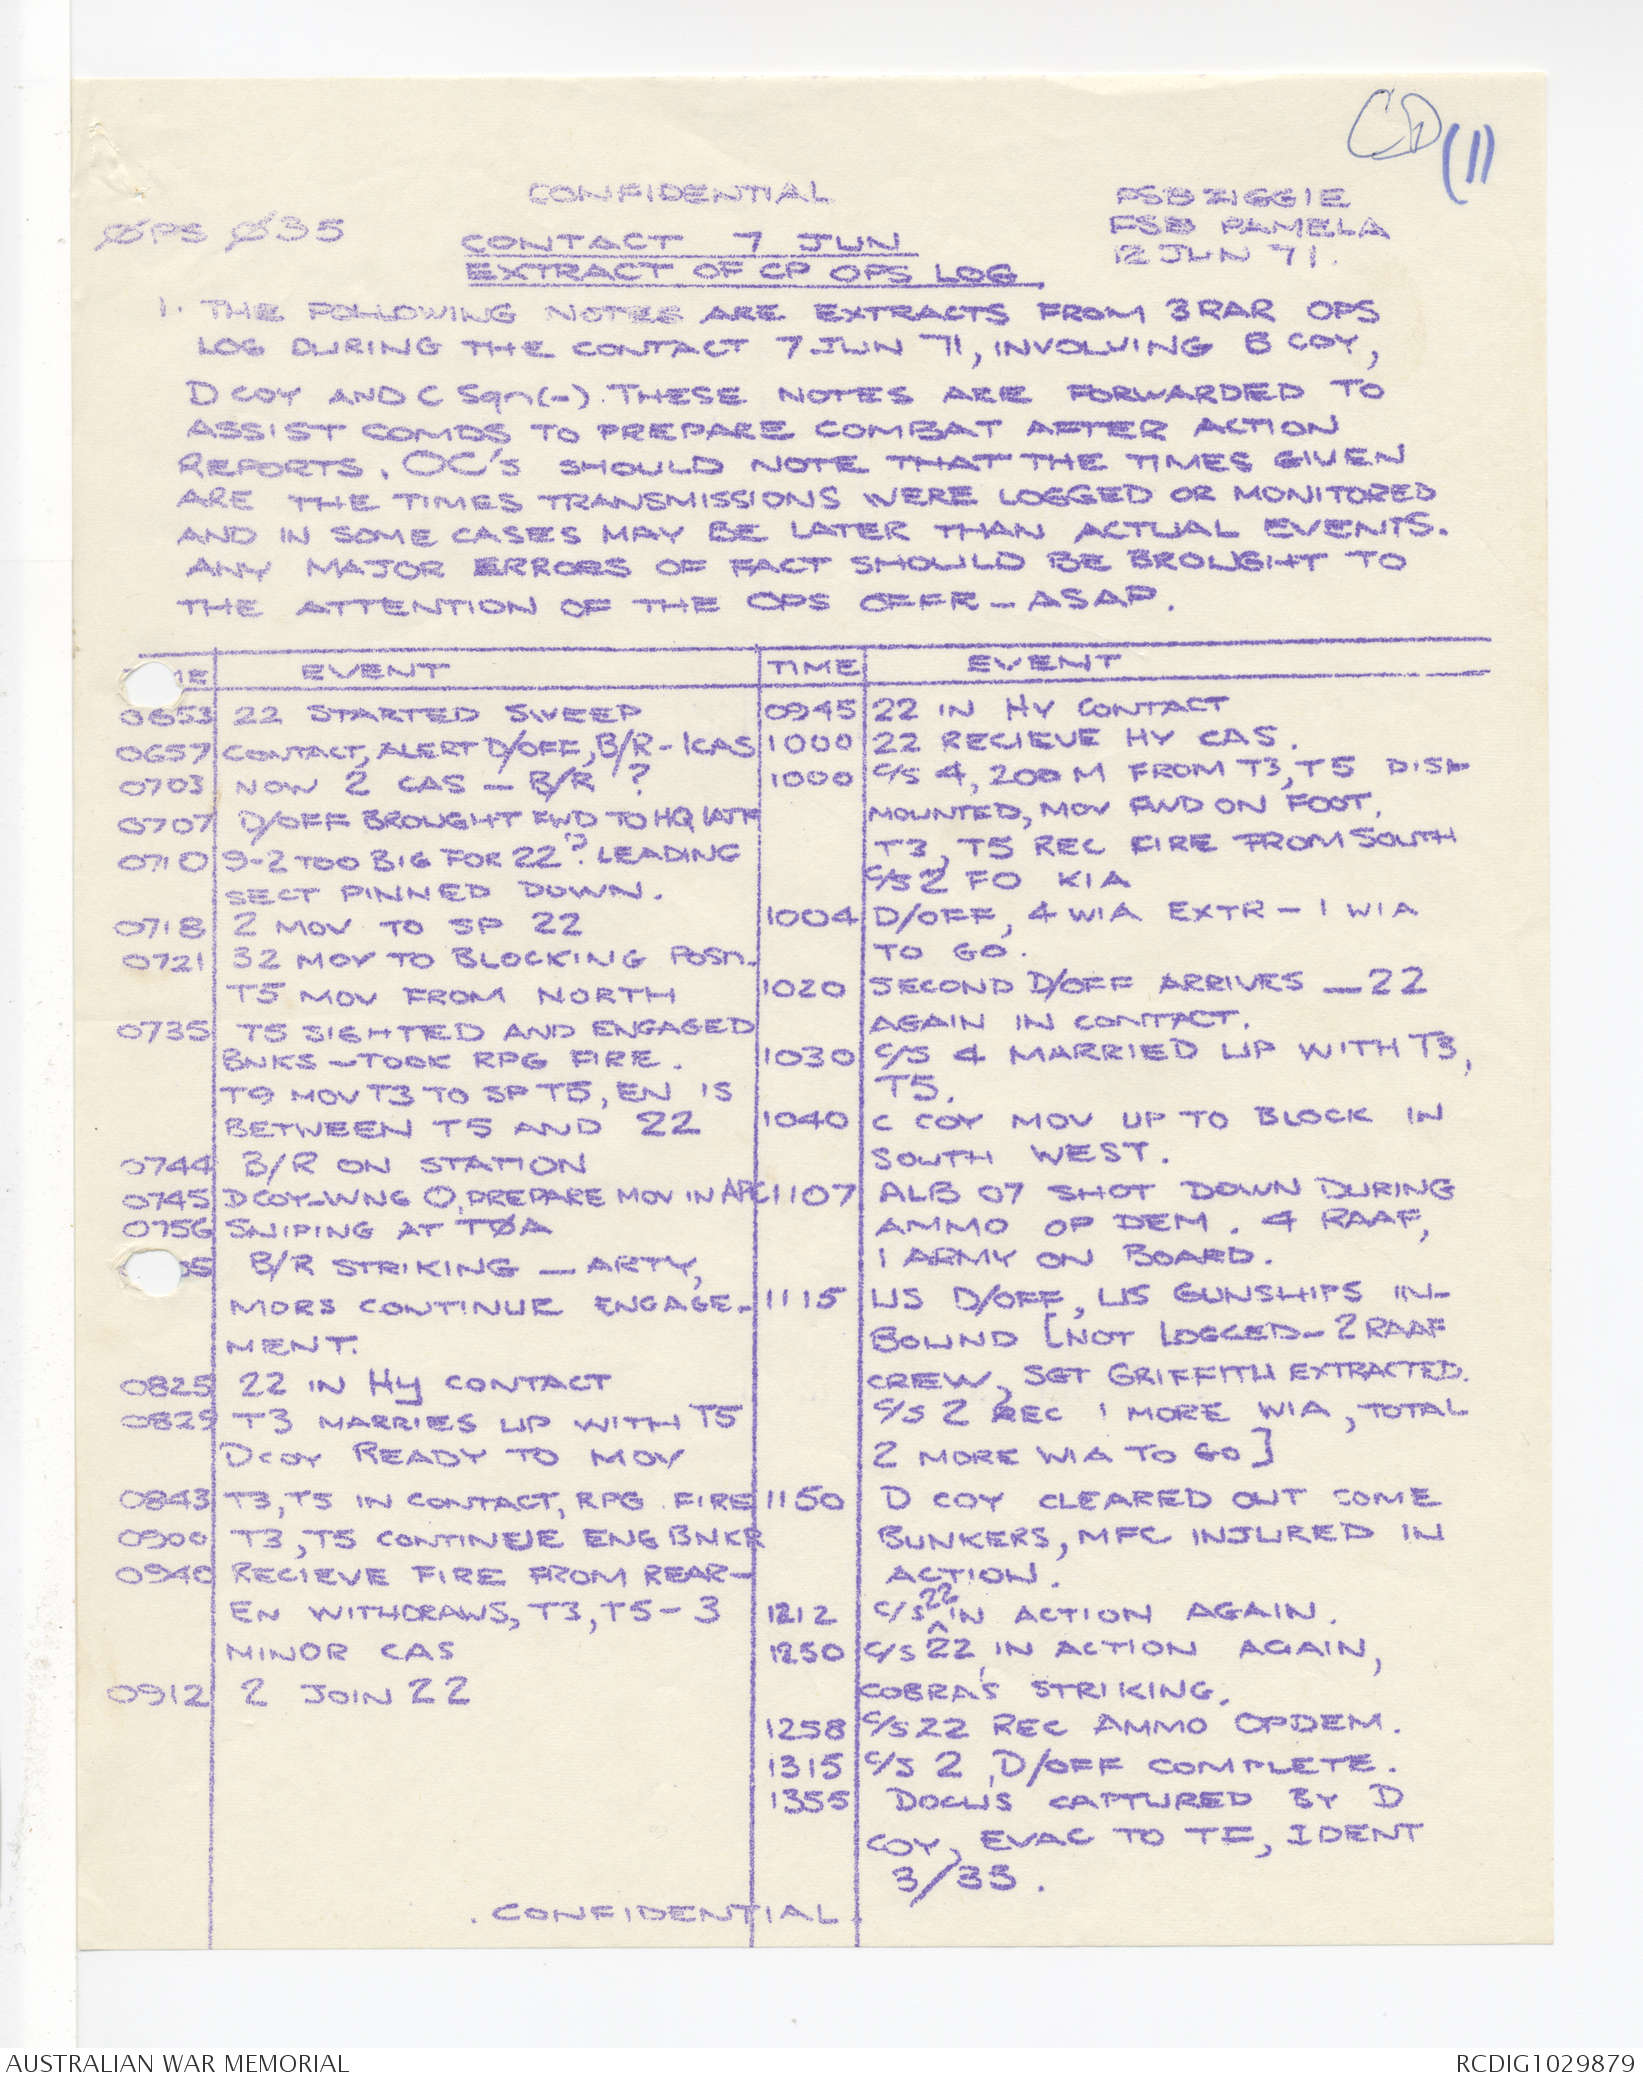 CD (11)
CONFIDENTIAL
ØPS Ø35
FSB ZIGGIE
FSB PAMELA
12 JUN 71.
CONTACT 7 JUN
EXTRACT OF CP OPS LOG.
1. THE FOLLOWING NOTES ARE EXTRACTS FROM 3RAR OPS
LOG DURING THE CONTACT 7 JUN 71, INVOLVING B COY,
D COY AND C Sqn(-). THESE NOTES ARE FORWARDED TO
ASSIST COMDS TO PREPARE COMBAT AFTER ACTION
REPORTS. OC's SHOULD NOTE THAT THE TIMES GIVEN
ARE THE TIMES TRANSMISSIONS WERE LOGGED OR MONITORED
AND IN SOME CASES MAY BE LATER THAN ACTUAL EVENTS.
ANY MAJOR ERRORS OF FACT SHOULD BE BROUGHT TO
THE ATTENTION OF THE OPS OFFR - ASAP.
EVENT
0653 22 STARTED SWEEP
0657 CONTACT, ALERT D/OFF, B/R - 1CAS
0703 NOW 2 CAS - B/R ?
0707 D/OFF BROUGHT FWD TO HQ 1ATF
0710 9-2 TOO BIG FOR 22? LEADING
SECT PINNED DOWN.
0718 2 MOV TO SP 22
0721 32 MOV TO BLOCKING POSN.
T5 MOV FROM NORTH
0735 T5 SIGHTED AND ENGAGED
BNKS - TOOK RPG FIRE.
T9 MOV T3 TO SP T5, EN IS
BETWEEN T5 AND 22
0744 B/R ON STATION
0745 D COY-WNG O, PREPARE MOV IN APC
0756 SNIPING AT TØA
05 B/R STRIKING - ARTY,
MORS CONTINUE ENGAGE-
MENT.
0825 22 IN Hy CONTACT
0829 T3 MARRIES UP WITH T5
D COY READY TO MOV
0843 T3, T5 IN CONTACT, RPG FIRE
0900 T3, T5 CONTINEUE ENG BNKR
0940 RECIEVE FIRE FROM REAR-
EN WITHDRAWS, T3, T5 - 3
MINOR CAS
0912 2 JOIN 22
TIME EVENT
0945 22 IN HY CONTACT
1000 22 RECIEVE HY CAS.
1000 C/S 4, 200 M FROM T3, T5 DIS-
MOUNTED, MOV FWD ON FOOT,
T3, T5 REC FIRE FROM SOUTH
C/S 2 FO KIA
1004 D/OFF, 4 WIA EXTR - 1 WIA
TO GO.
1020 SECOND D/OFF ARRIVES - 22
AGAIN IN CONTACT.
1030 C/S 4 MARRIED UP WITH T3,
T5.
1040 C COY MOV UP TO BLOCK IN
SOUTH WEST.
1107 ALB 07 SHOT DOWN DURING
AMMO OP DEM. 4 RAAF,
1 ARMY ON BOARD.
1115 US D/OFF, US GUNSHIPS IN-
BOUND [NOT LOGGED - 2 RAAF
CREW, SGT GRIFFITH EXTRACTED.
C/S 2 REC 1 MORE WIA, TOTAL
2 MORE WIA TO GO]
1150 D COY CLEARED OUT SOME
BUNKERS, MFC INJURED IN
ACTION.
1212 C/S 22 IN ACTION AGAIN.
1250 C/S 22, IN ACTION AGAIN,
COBRA'S STRIKING.
1258 C/S 22 REC AMMO OPDEM.
1315 C/S 2, D/OFF COMPLETE.
1355 DOCUS CAPTURED BY D
COY, EVAC TO TF, IDENT
3/33.
. CONFIDENTIAL.
AUSTRALIAN WAR MEMORIAL
RCDIG1029879